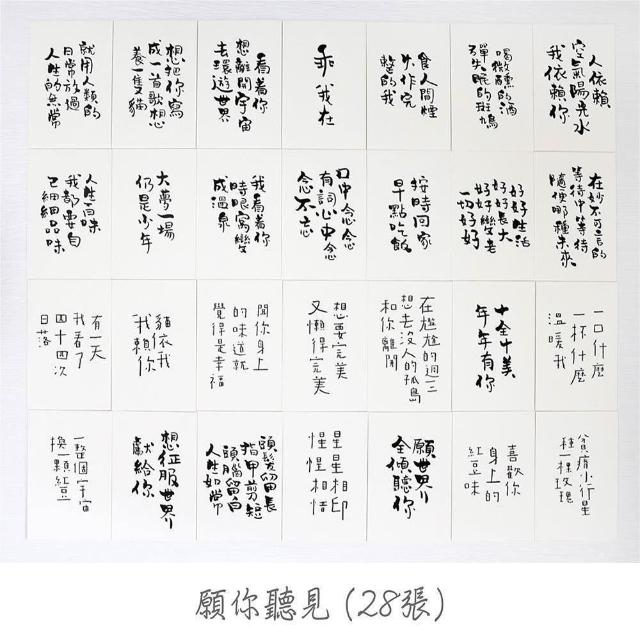 就用人類的
日常放過
人生的無常
想把你寫
成一首歌想
養一隻貓
看着你
想離開宇宙
去環遊世界
乖 我在
食人間煙
火作完
整的我
喝微醺的酒
彈失眠的斑鳩
人依賴
空氣陽光水
我依賴你
人生百味
我都要自
己細細品味
大夢一場
仍是少年
我看着你
時眼窩變
成溫泉
口中念念
有詞心中念
念不忘
按時回家
早點吃飯
好好生活
好好長大
好好變老
一切好好
在妙不可言的
等待中等待
隨便哪種未來
有一天
我看了
四十四次
日落
貓依我
我賴你
聞你身上
的味道就
覺得是幸福
想要完美
又懶得完美
在尷尬的週三
想去沒人的孤島
和你離開
十全十美
年年有你
一口什麼
一杯什麼
溫暖我
一整個宇宙
換一顆紅豆
想征服世界
獻給你
頭髮留長
指甲剪短
頭腦留白
人生如常
星星相印
惺惺相惜
願世界
全傾聽你
喜歡你
身上的
紅豆味
貧瘠小行星
種一棵玫瑰
願你聽見 (28張)